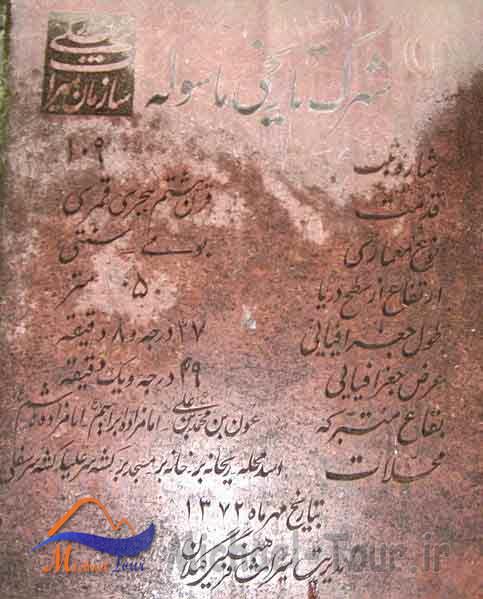 سازمان میراث ملی
شهرک تاریخی ماسوله
شماره ثبت ۱۰۹
قدمت قرن هشتم هجری قمری
نوع معماری بومی سنتی
ارتفاع از سطح دریا ۱۰۵۰ متر
طول جغرافیائی ۳۷ درجه و ۸ دقیقه
عرض جغرافیائی ۴۹ درجه و یک دقیقه
بقاع متبرکه عون بن محمد بن علی، امامزاده ابراهیم، امامزاده هاشم
محلات اسد محله ریحانه بر خانه بر مسجد بر کشه سر علیا کشه سر سفلی
بتاریخ مهرماه ۱۳۷۲
مدیریت میراث فرهنگی گیلان
Masouleh Tour
MasoulehTour.ir